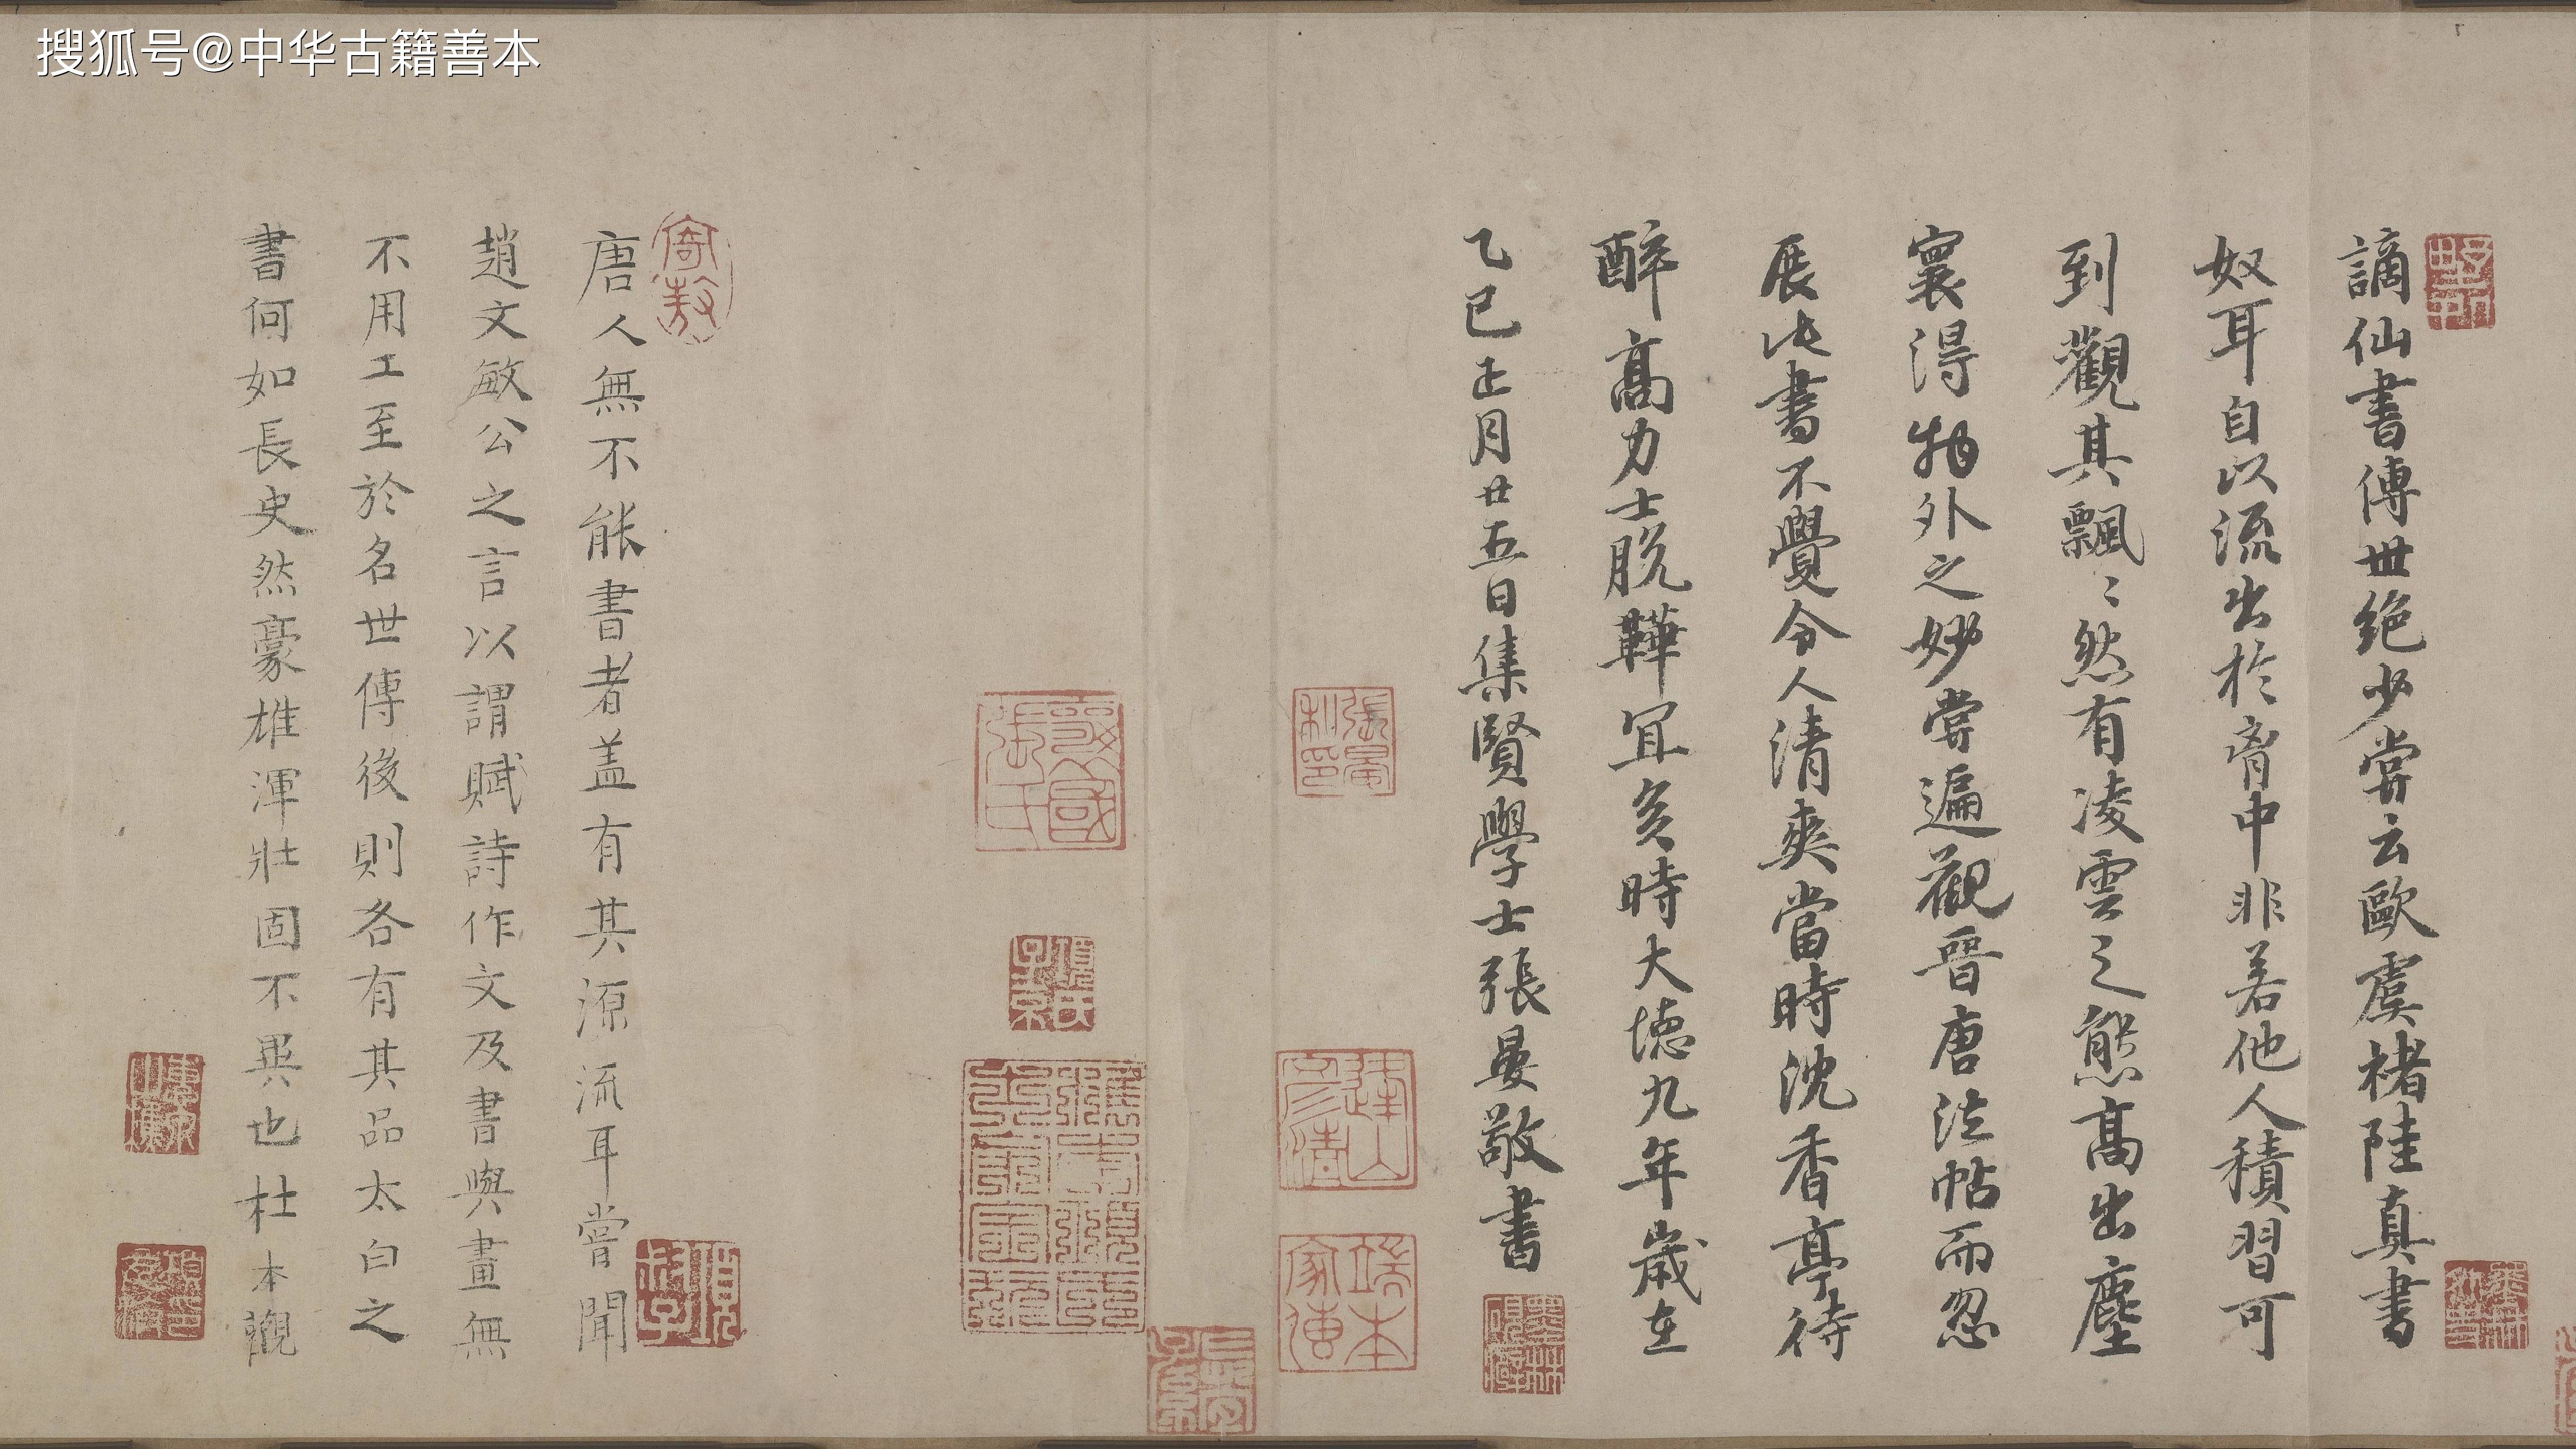 搜狐号@中华古籍善本
謫仙書傳世絕少嘗云歐虞褚陸真書
奴耳自以流出於胷中非若他人積習可
到觀其飄〻然有凌雲之態高出塵
寰得物外之妙嘗遍觀晉唐法帖而忽
展此書不覺令人清爽當時沈香亭待
醉高力士脫鞾宜矣時大德九年歲在
乙巳正月廿五日集賢學士張晏敬書
張晏私印
襄國張氏
端本家傳
唐人無不能書者盖有其源流耳嘗聞
趙文敏公之言以謂賦詩作文及書與畫無
不用工至於名世傳後則各有其品太白之
書何如長史然豪雄渾壯固不異也杜本觀